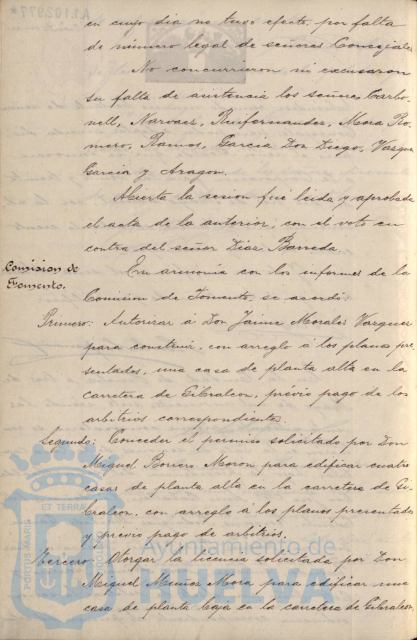 A1102977*
en cuyo dia no tuvo efecto por falta
de número legal de señores Concejales
No concurrieron, ni excusaron
su falta de asistencia los señores Carbo-
nell, Narvaez, Buifernandez, Mora Ro-
mero, Ramos, Garcia Don Diego, Vazquez
Garcia y Aragon.
Abierta la sesion fué leida y aprobada
el acta de la anterior, con el voto en
contra del señor Diaz Barreda.
Comision de
Fomento.
En armonia con los informes de la
Comision de Fomento, se acordó:
Primero: Autorizar á Don Jaime Morales Vazquez
para construir, con arreglo á los planos pre-
sentados, una casa de planta alta en la
carretera de Gibraleon, previo pago de los
arbitrios correspondientes.
Segundo: Conceder el permiso solicitado por Don
Miguel Borrero Moron para edificar cuatro
casas de planta alta en la carretera de Gi-
braleon, con arreglo á los planos presentados
y previo pago de arbitrios.
Tercero: Otorgar la licencia solicitada por Don
Miguel Mora para edificar una
casa de planta baja en la carretera de Gibraleon,
PORTUS MARIS
ET TERRAE
Ayuntamiento de
HUELVA